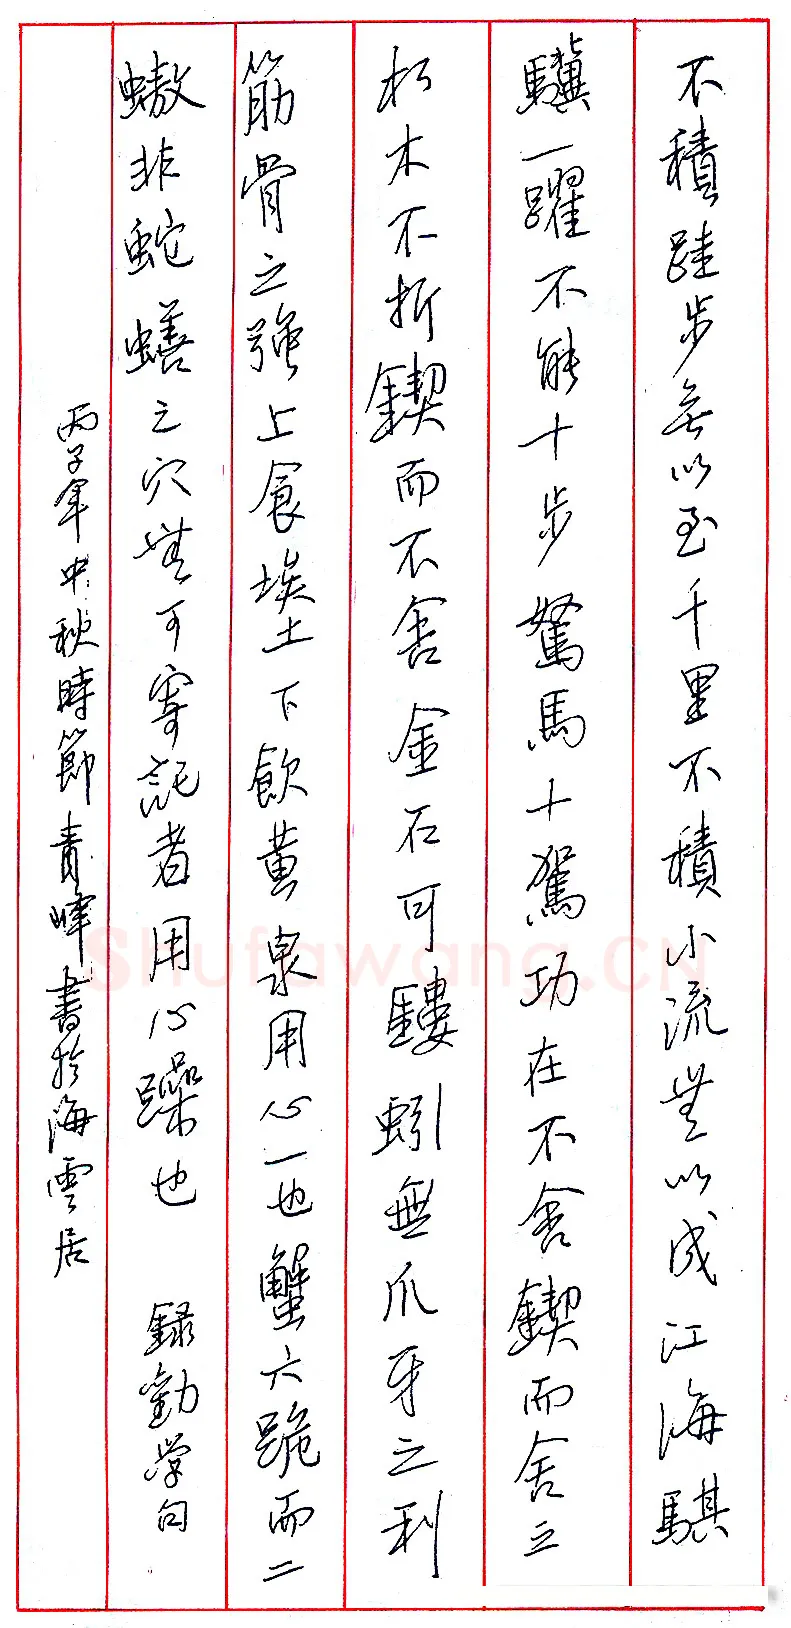 不積跬步無以至千里不積小流無以成江海騏
驥一躍不能十步駑馬十駕功在不舍鍥而舍之
朽木不折鍥而不舍金石可鏤蚓無爪牙之利
筋骨之強上食埃土下飲黃泉用心一也蟹六跪而二
螯非蛇蟮之穴無可寄託者用心躁也 録勸學句
丙子年中秋時節青峰書於海雲居
Shufawang.CN